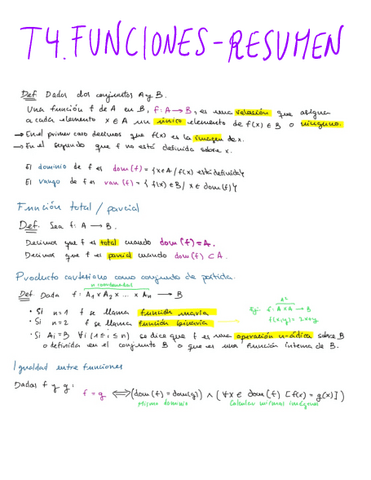 T4. FUNCIONES - RESUMEN
Def Dados dos conjuntos A y B.
Una función f de A en B, f: A → B, es una relación que asigna
a cada elemento x ∈ A un único elemento de f(x) ∈ B o ninguno.
→ En el primer caso decimos que f(x) es la imagen de x.
→ En el segundo que f no está definida sobre x.
El dominio de f es dom(f) = {x∈A / f(x) está definida}
El rango de f es ran(f) = { f(x) ∈ B / x ∈ dom(f)}
Función total / parcial
Def. Sea f: A → B.
Decimos que f es total cuando dom(f) = A.
Decimos que f es parcial cuando dom(f) ⊂ A.
Producto cartesiano como conjunto de partida.
Def Dada f: A₁ x A₂ x ... x Aₙ → B
• Si n=1 f se llama función unaria
• Si n=2 f se llama función binaria
• Si Aᵢ = B ∀i (1≤i≤n) se dice que f es una operación n-ádica sobre B
o definida en el conjunto B o que es una función interna de B.
Igualdad entre funciones
Dadas f y g: f = g ⟺ (dom(f) = dom(g)) ∧ (∀x ∈ dom(f) [f(x) = g(x)])
Mismo dominio